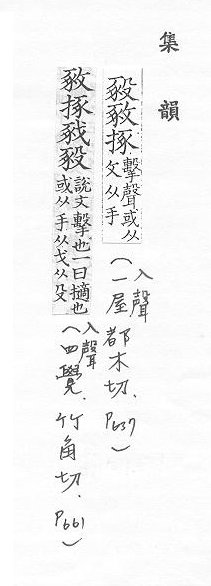 集韻
㪇㧻
擊聲或从
攵从手
(入聲
一屋都木切.P637)
㪇㧻
說文擊也一曰擿也
或从手从戈从殳
(入聲
四覺.竹角切.P661)